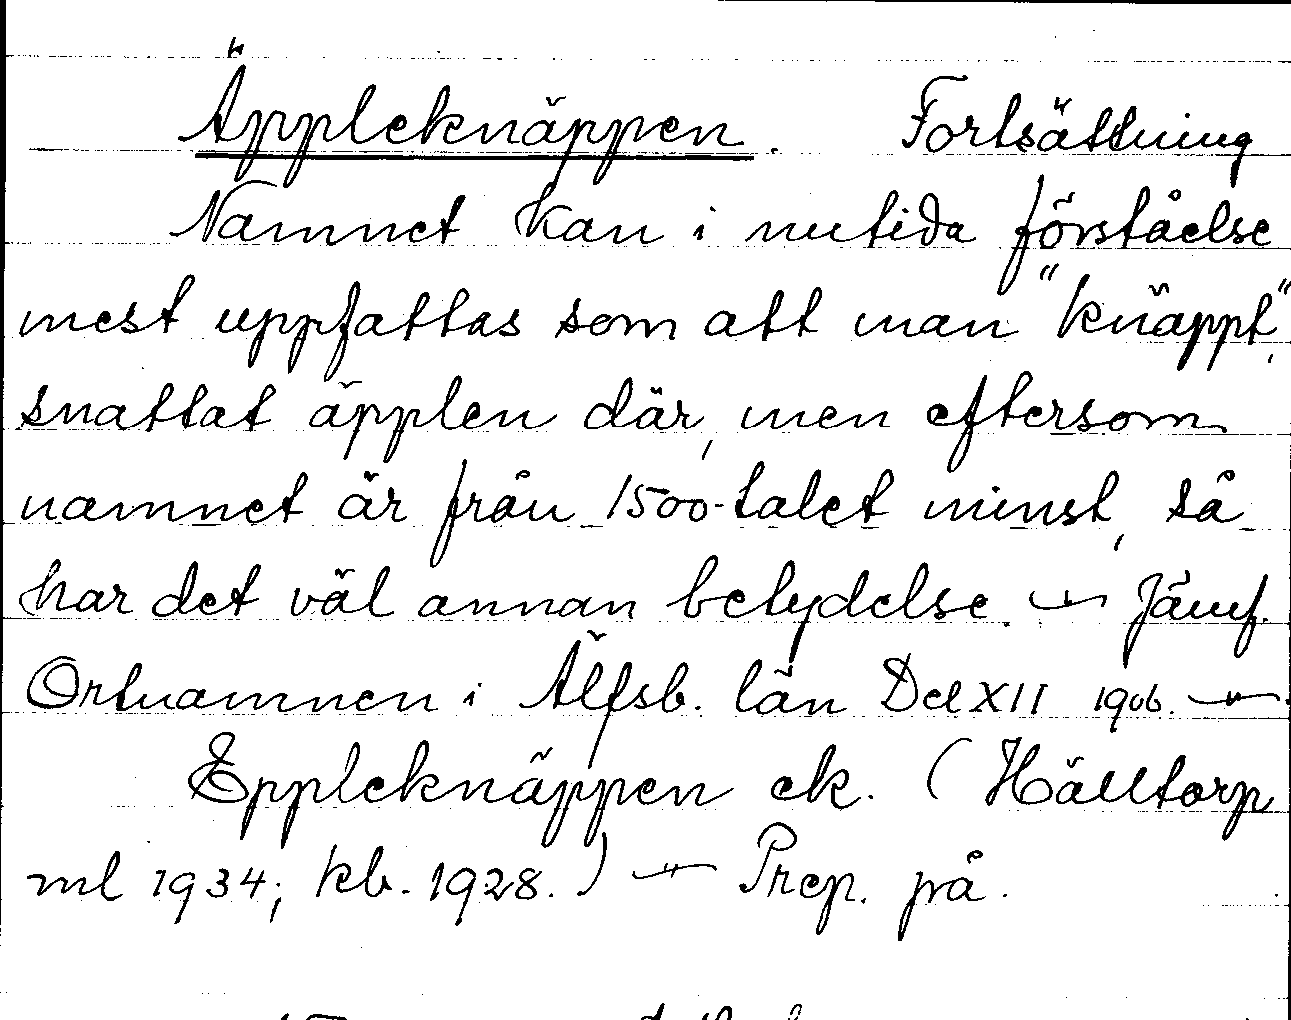 Äppleknäppen. Fortsättning
Namnet kan i nutida förståelse
mest uppfattas som att man "knäppt,"
snattat äpplen där, men eftersom
namnet är från 1500-talet minst, så
har det väl annan betydelse. — Jämf.
Ortnamnen i Älfsb. län Del XII 1906. —
Eppleknäppen ek. (Hälltorp
ml 1934; kb. 1928.) — Prep. på.